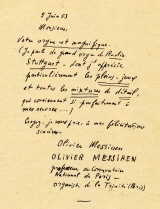 5 Juin 53
Monsieur,
Votre orgue est magnifique.
(Je parle du grand orgue de Radio
Stuttgart - dont j'apprécie
particulièrement les pleins-jeux
et toutes les mixtures de détail,
qui conviennent si parfaitement à
mes œuvres...)
Croyez, je vous prie, à mes félicitations
sincères.
Olivier Messiaen
OLIVIER MESSIAEN
professeur au Conservatoire
National de Paris -
organiste de la Trinité (Paris)